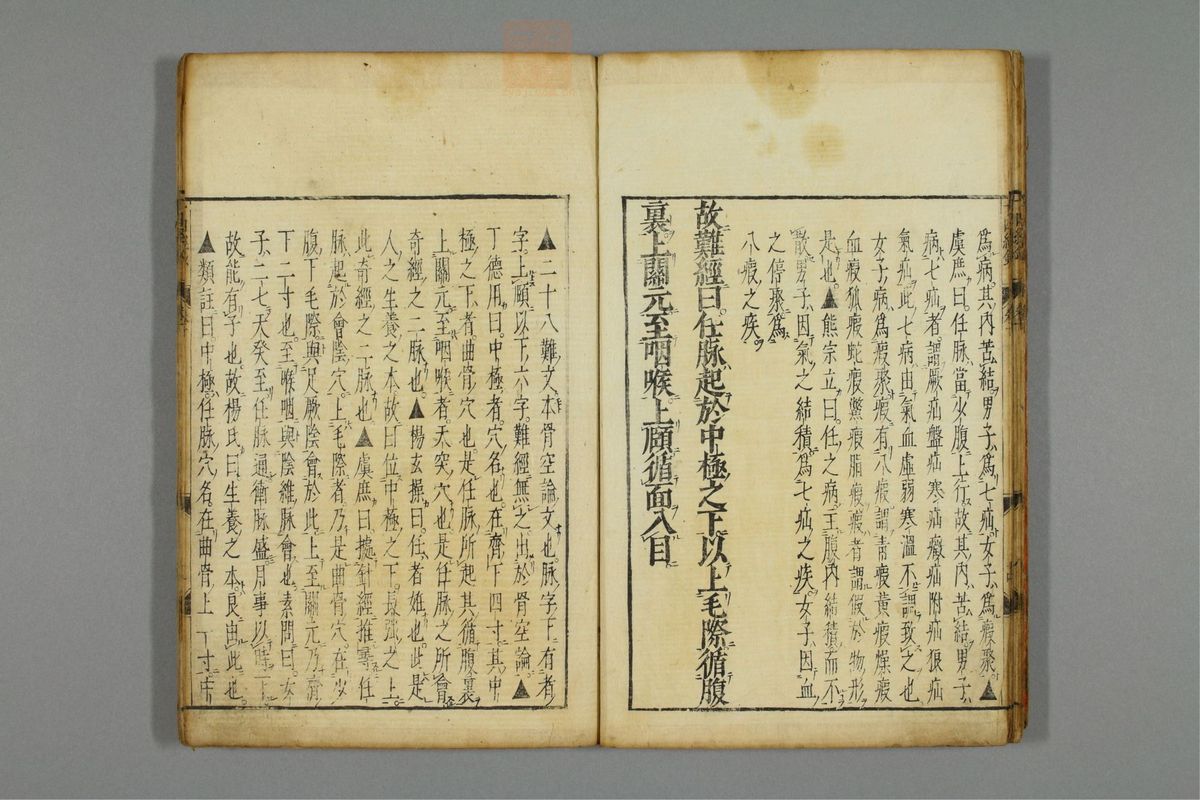 爲病其内苦結男子爲七疝女子爲瘕聚▲
虞庶曰任脉當少腹上行故其内苦結男子
病七疝者謂厥疝盤疝寒疝癥疝附疝狼疝
氣疝此七病由氣血虛弱寒溫不調致之也
女子病爲瘕聚瘕有八瘕謂靑瘕黄瘕燥瘕
血瘕狐瘕蛇瘕鱉瘕脂瘕瘕者謂假於物形
是也▲熊宗立曰任之病主腹内結積而不
散男子因氣之結積爲七疝之疾女子因血
之停聚爲
八瘕之疾
故難經曰任脉起於中極之下以上毛際循腹
裏上關元至咽喉上頤循面入目
▲二十八難文本骨空論文也脉字下有者
字上頤以下六字難經無之出於骨空論▲
丁德用曰中極者穴名也在齊下四寸其中
極之下者曲骨穴也是任脉所起其循腹裏
上關元至咽喉者天突穴也是任脉之所會
奇經之二脉也▲楊玄操曰任者妊也此是
人之生養之本故曰位中極之下長强之上
此奇經之二脉也▲虞庶曰據針經推尋任
脉起於會陰穴上毛際者乃是曲骨穴在少
腹下毛際與足厥陰會於此上至關元乃齊
下二寸也至喉咽與陰維脉會也素問曰女
子二七天癸至任脉通衝脉盛月事以時下
故能有子也故楊氏曰生養之本良由此也
▲類註曰中極任脉穴名在曲骨上一寸中